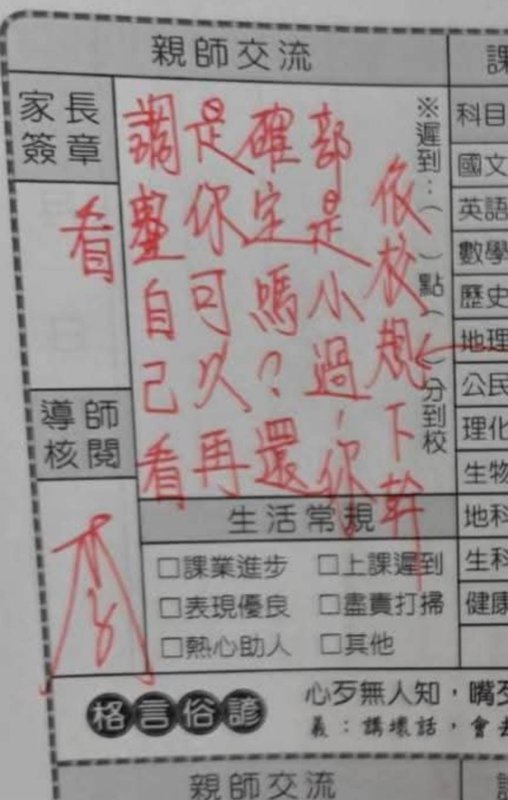 親師交流
家長
簽章
※遲到：（ ）點（ ）分到校
依校規下幹
部是小過，你
確定嗎？還
是你可以再
調整自己看
看
導師
核閱
生活常規
□課業進步 □上課遲到
□表現優良 □盡責打掃
□熱心助人 □其他
課
科目
國文
英語
數學
歷史
地理
公民
理化
生物
地科
生科
健康
格言俗諺
心歹無人知，嘴歹
義：講壞話，會去
親師交流